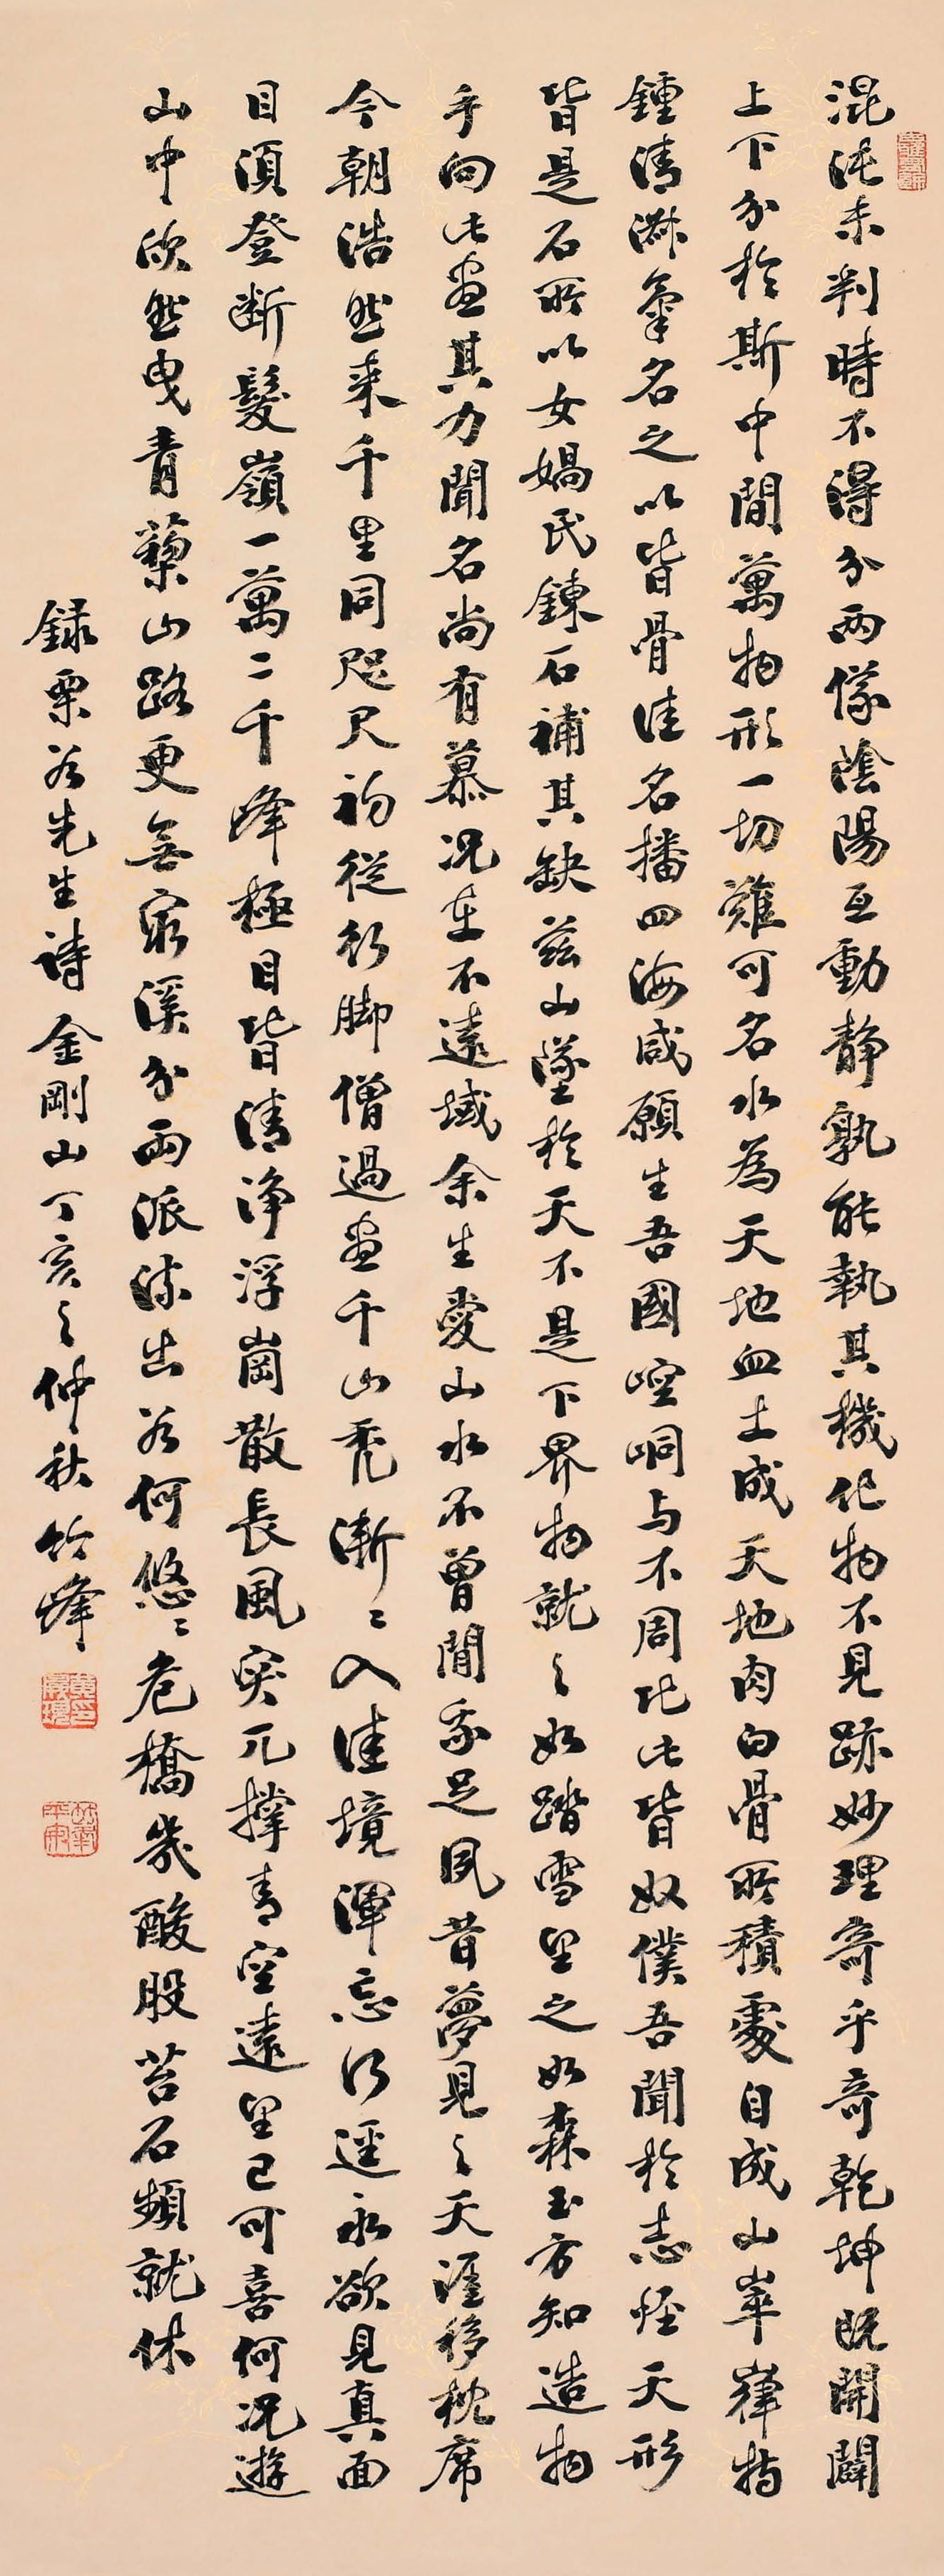 混沌未判時不得分兩儀陰陽互動靜孰能執其機化物不見跡妙理奇乎奇乾坤既開闢
上下分於斯中間萬物形一切難可名水為天地血土成天地肉白骨所積處自成山崒嵂特
鍾清淋氣名之以皆骨佳名播四海咸願生吾國崆峒与不周比此皆奴僕吾聞於志怪天形
皆是石所以女媧氏鍊石補其缺茲山墜於天不是下界物就之如踏雪望之如森玉方知造物
手向此畫其力聞名尚有慕況在不遠域余生愛山水不曾閒我足夙昔夢見之天涯移枕席
今朝浩然來千里同咫尺初從行脚僧過盡千山禿漸〻入佳境渾忘行逕永欲見真面
目須登断髮嶺一萬二千峰極目皆清淨浮嵐散長風突兀撐青空遠望已可喜何況遊
山中欣然曳青藜山路更無窮溪分兩派流出谷何悠〻危橋幾酸股苔石頻就休
録栗谷先生詩金剛山丁亥之仲秋竹峰